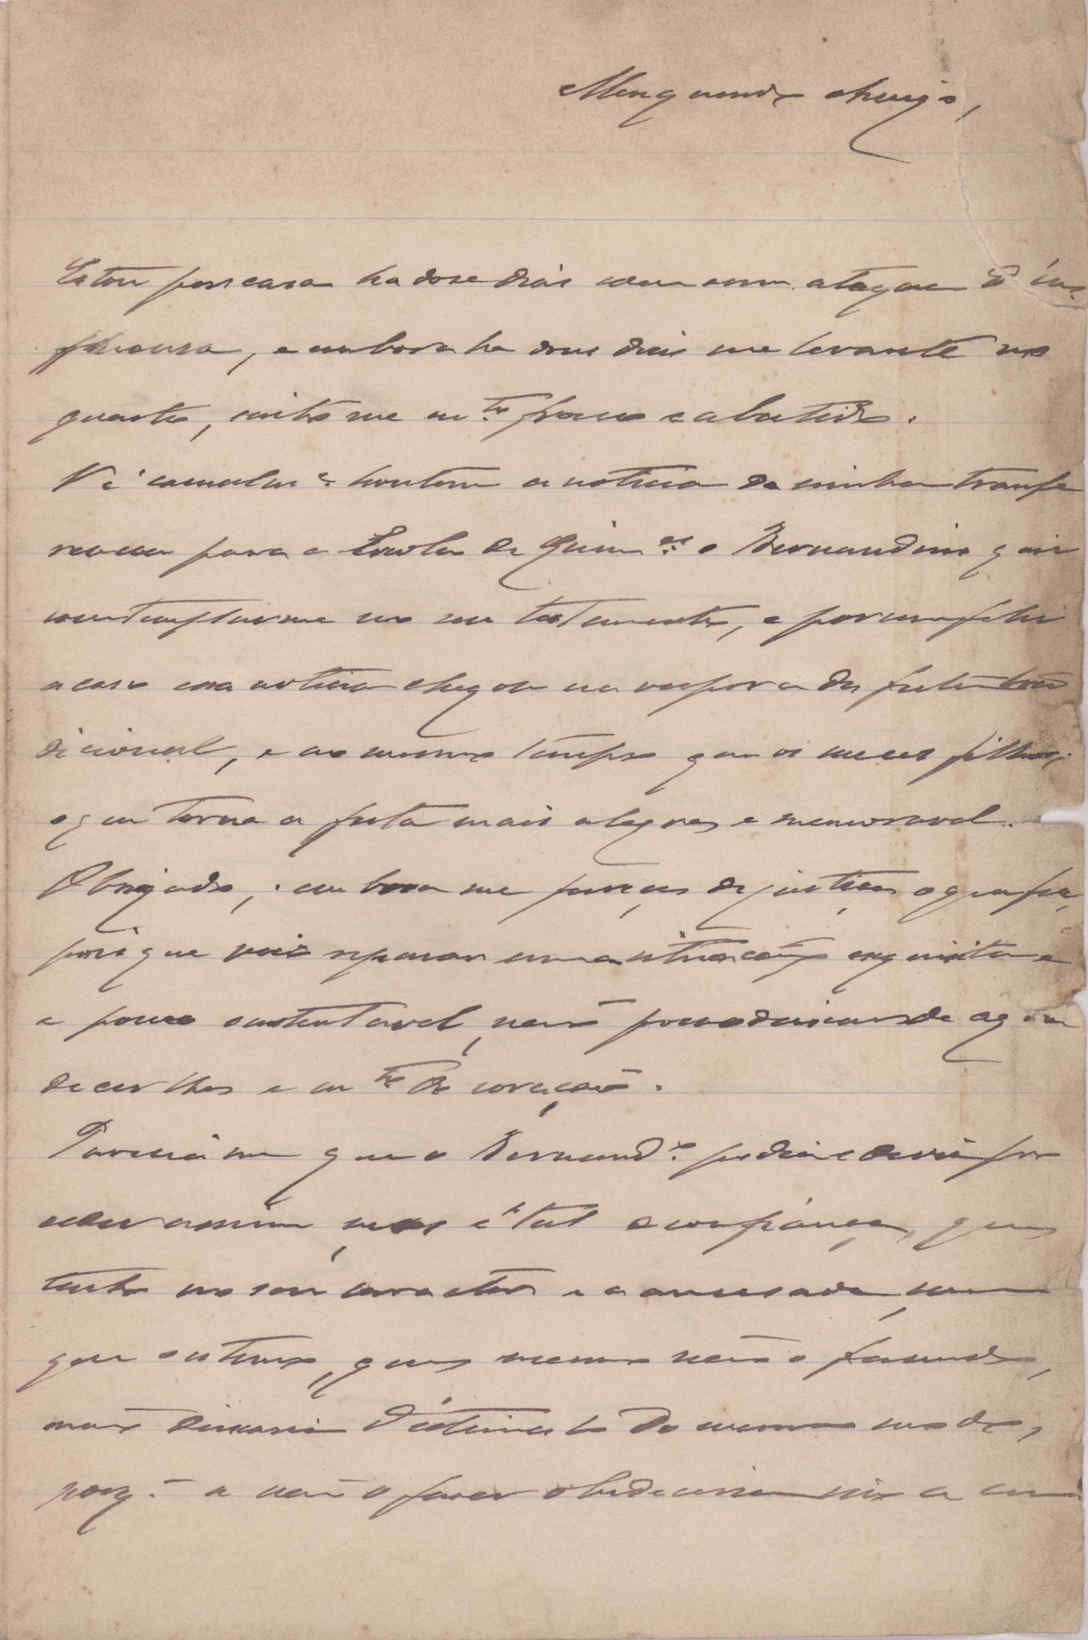 Meu querido Amigo,
Estou por casa ha dose dias com um ataque d'in-
fluensa, e embora ha dous dias me levante no
quarto, sinto-me m.to fraco e abatido.
hontem a noticia da minha transfe
rencia para a Escola de Guim.es o Bernardino quiz
contemplar-me no seu testamento, e por um feliz
acaso essa noticia chegou na vespera da festa tra
dicional, e ao mesmo tempo que os meus filhos,
o que torna a festa mais alegre e memoravel.
Obrigado, embora me pareça de justiça o que fez,
porque veio reparar uma situação exquisita e
e pouco sustentavel, não posso deixar de agra
decer-lhes e m.to de coração.
Parecia-me que o Bernard.o podia e devia pro
ceder assim, mas é tal a confiança, que
tenho no seu caracter e a amisade, em
que o estimo, que mesmo não o fazendo,
não deixaria d'estima-lo do mesmo modo,
porq. a não o fazer obedeceria a um